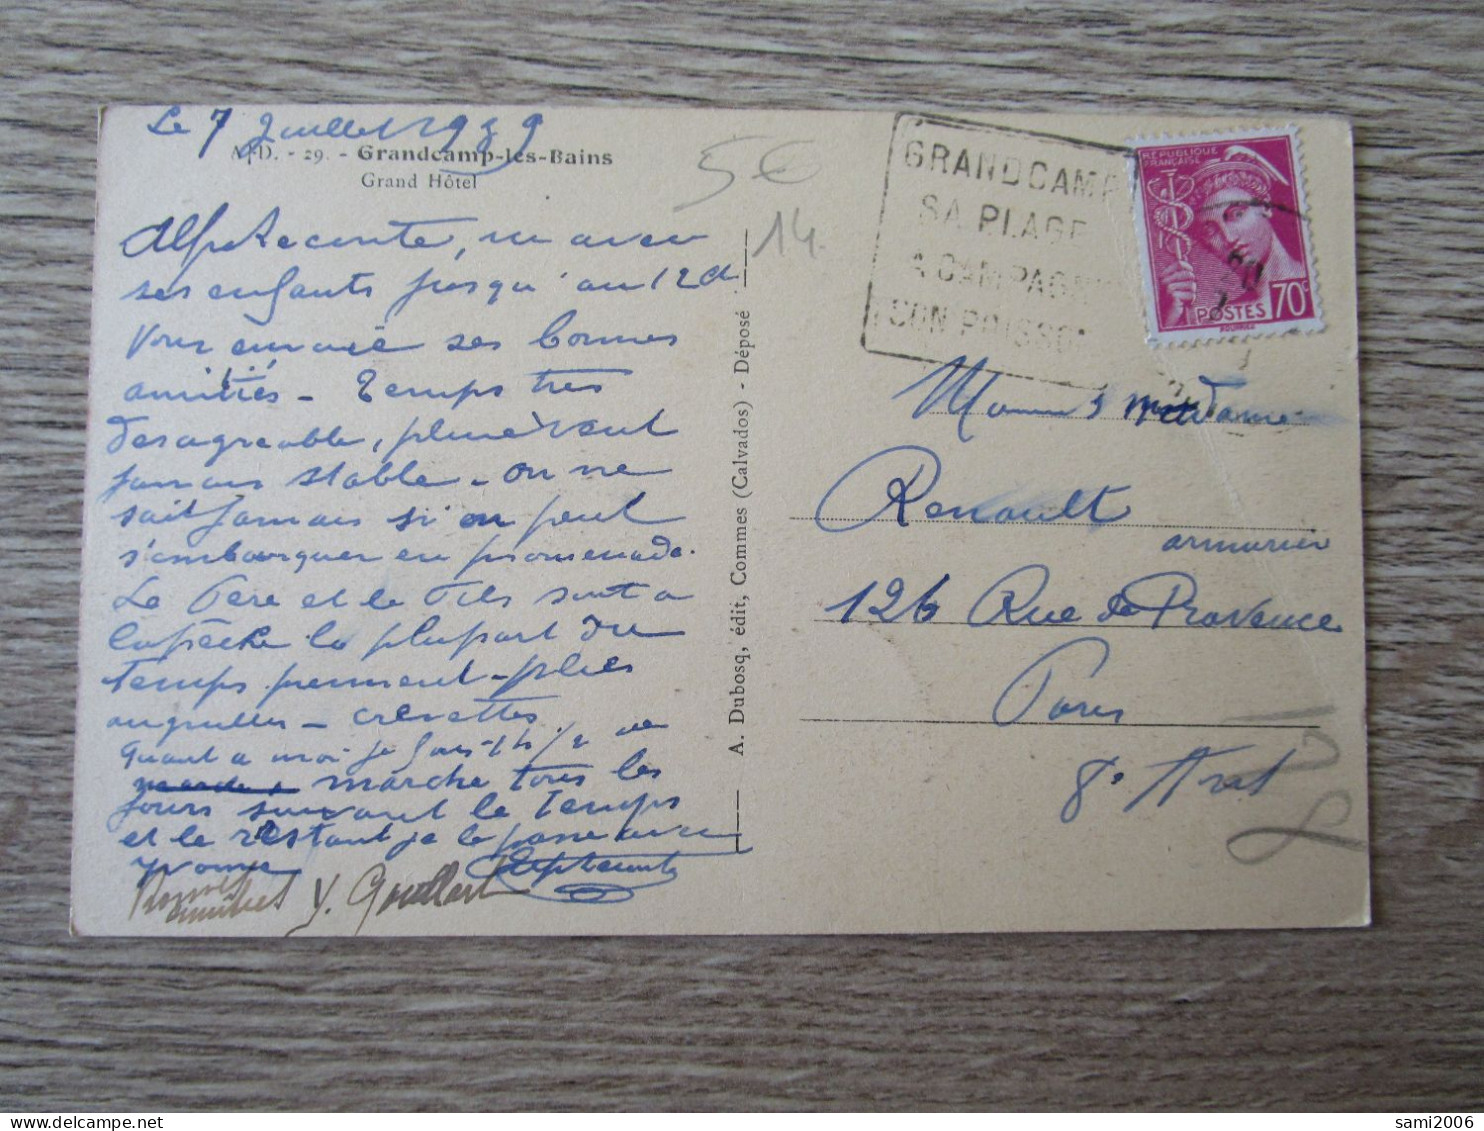 Le 7 Juillet 1939
A. D. - 29. - Grandcamp-les-Bains
Grand Hôtel
5€
14.
avec
ses enfants jusqu'au 12 et
vous envoie ses bonnes
amitiés - Temps tres
desagreable, pluie vent
jamais stable - on ne
sait jamais si on peut
s'embarquer en promenade.
Le Père et le Fils sont a
la pêche la plupart du
temps prennent - plies
anguilles - crevettes
Quant a moi je fais 1h 1/2 de
marche tous les
jours suivant le temps
et le restant je le passe avec
Yvonne
Bonnes
amitiés Y. Gouillart
A. Dubosq, édit, Commes (Calvados) - Déposé
GRANDCAMP
SA PLAGE
SA CAMPAGNE
SON POISSON
RÉPUBLIQUE
FRANÇAISE
POSTES 70c
Monsieur Madame
Renault
armurier
126 Rue de Provence
Paris
8e Arrt
sami2006
delcampe.net